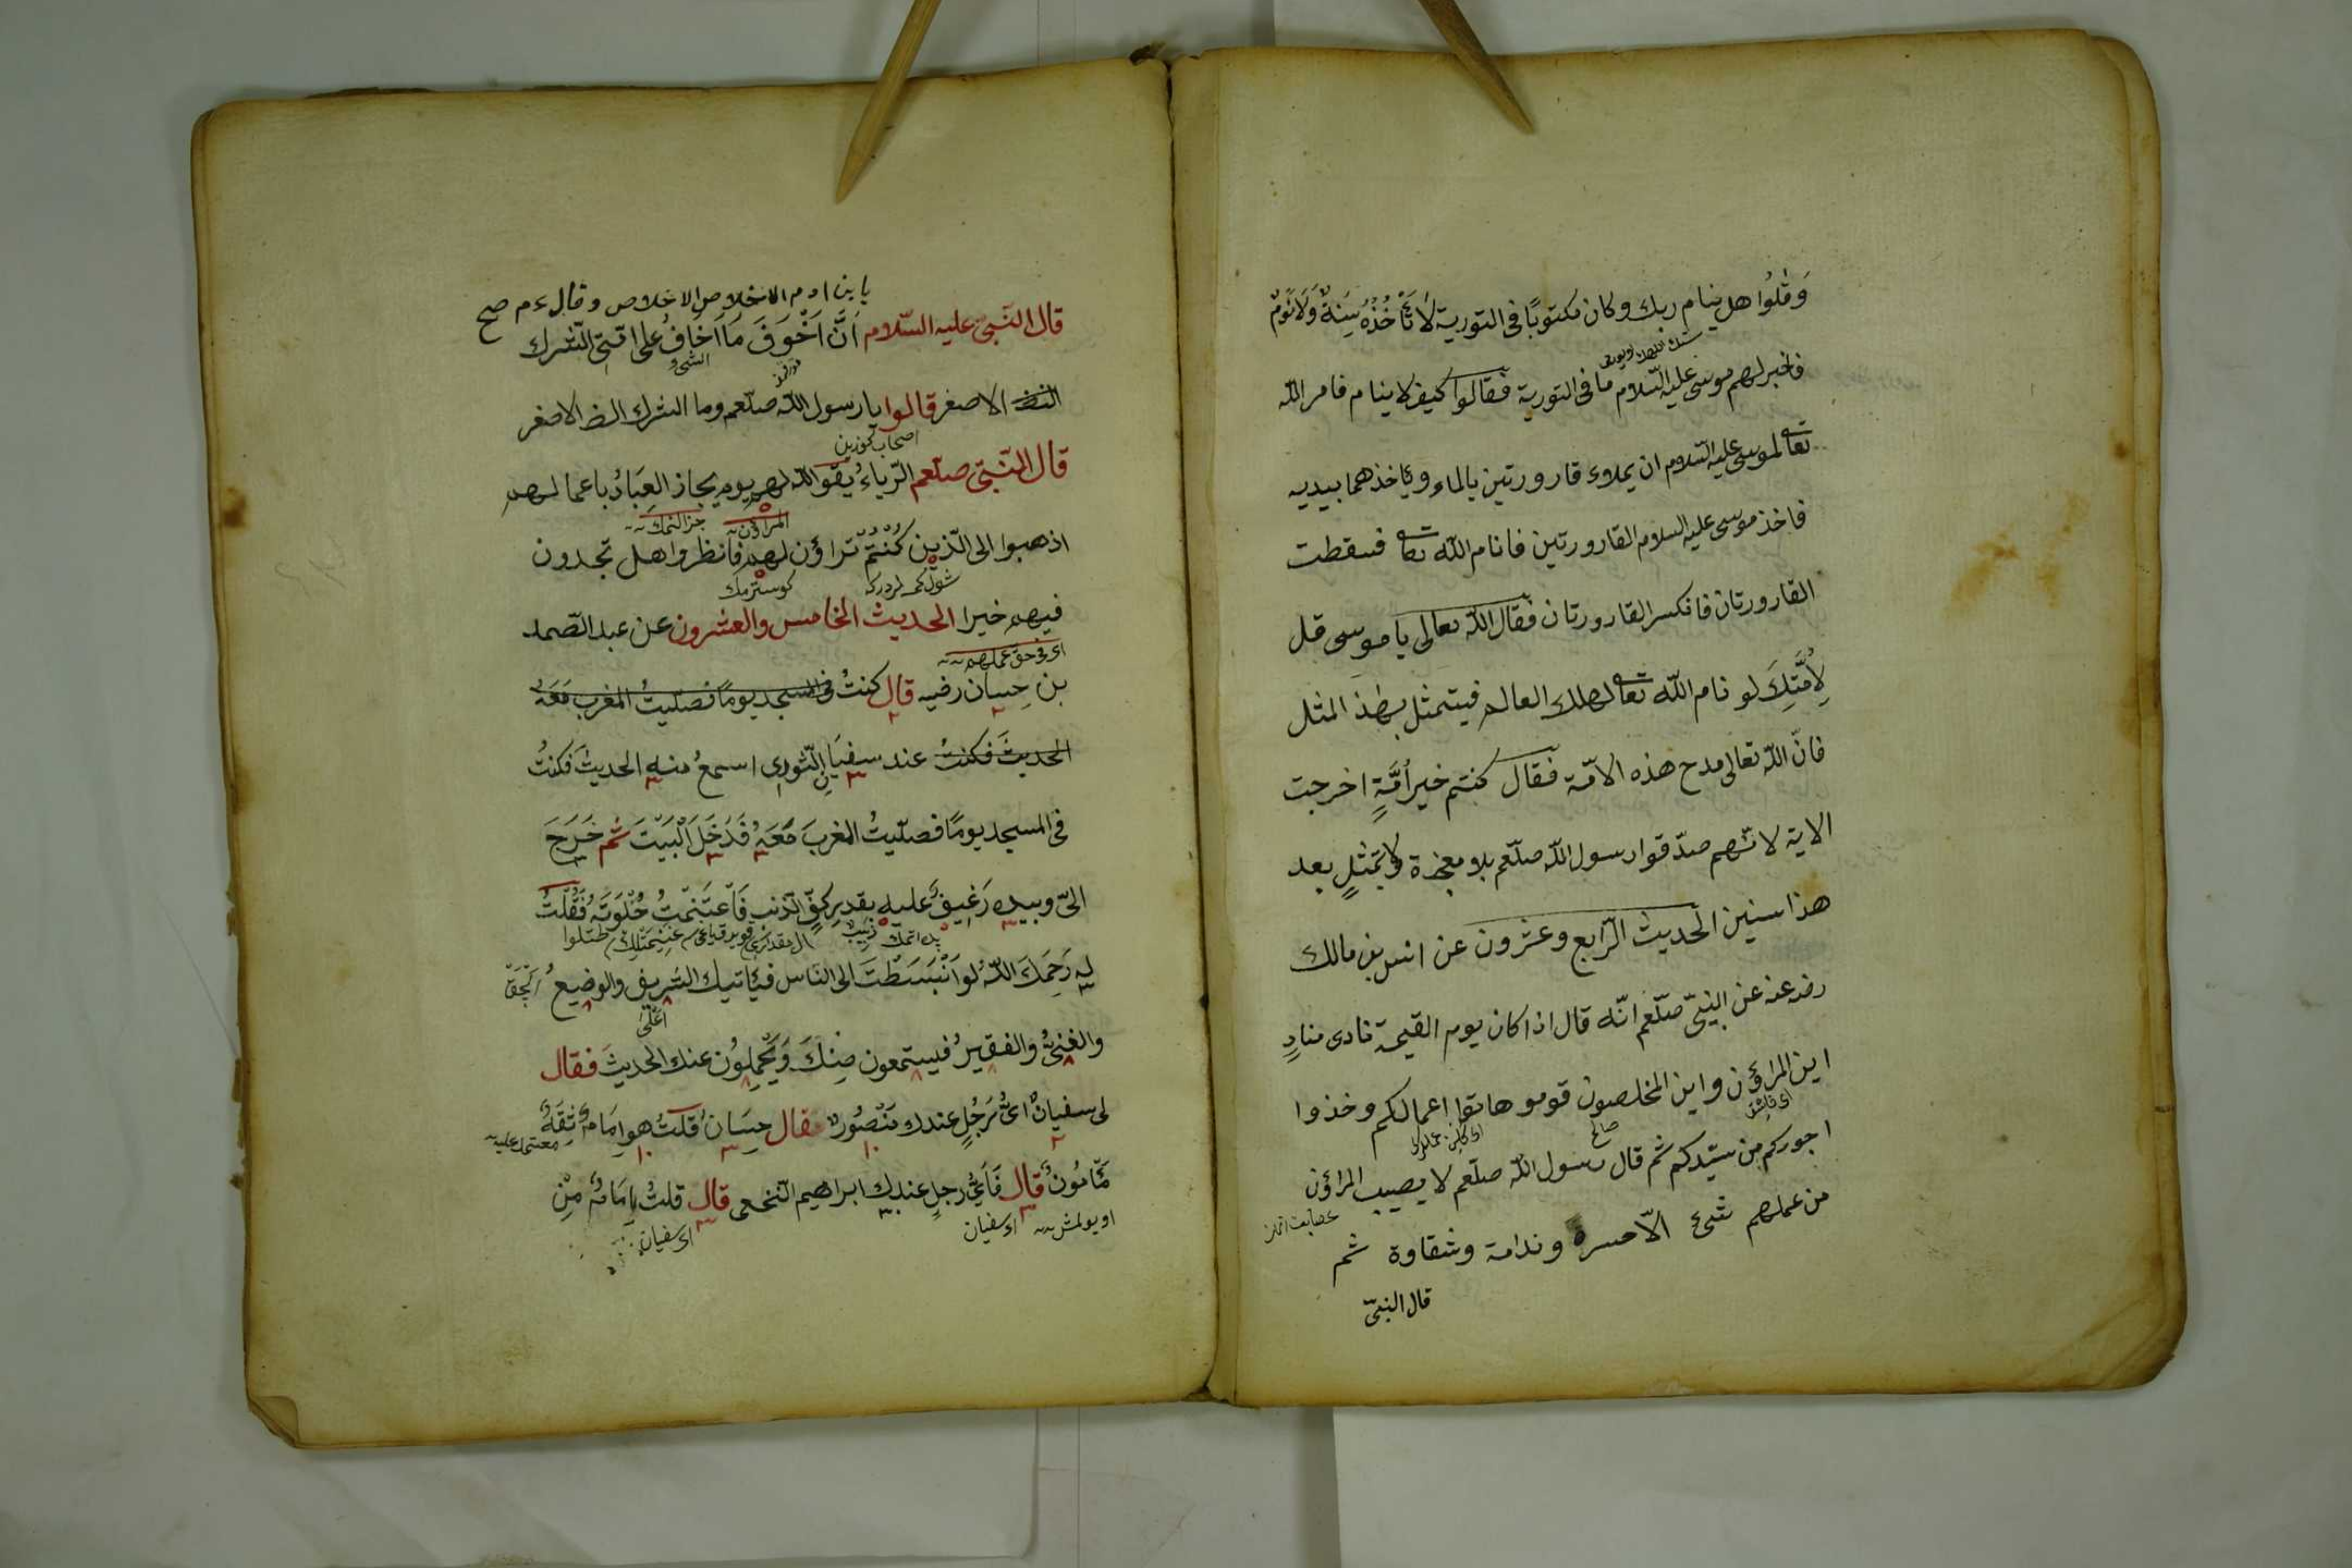 وقلوا هل ينام ربك وكان مكتوبًا فى التورية لَا تَأْخُذُهُ سِنَةٌ وَلَا نَوْمٌ
فاخبر لهم موسى عليه السّلام ما فى التورية فقالوا كيف لا ينام فامر اللّه
تعالى لموسى عليه السلام ان يملاء قارورتين بالماء وياخذهما بيديه
فاخذ موسى عليه السلام القارورتين فانام اللّه تعالى فسقطت
القارورتان فانكسر القارورتان فقال اللّه تعالى يا موسى قل
لِأُمَّتِكَ لو نام اللّه تعالى لهلك العالم فيتمثل بهذ المثل
فانّ اللّه تعالى مدح هذه الامّة فقال كنتم خير أمّةٍ اخرجت
الاية لانّهم صدّقوا رسول اللّه صلّعم بلا معجزة ولا تمثلٍ بعد
هذا سنين الحديث الرّابع وعشرون عن انس بن مالك
رضه عنه عن النبىّ صلّعم انّه قال اذا كان يوم القيمة نادى منادٍ
اين المراؤن واين المخلصون قومو هاتوا اعمالكم وخذوا
صالح
اجوركم من سيّدكم ثم قال رسول اللّه صلّعم لا يصيب المراؤن
من عملهم شئ الّا حسرة وندامة وشقاوة ثم
قال النبىّ
يا بن ادم الاخلاص الاخلاص وقال ءم صح
قال النّبىّ عليه السّلام انّ اَخْوَفَ مَا اَخافُ على امّتى الشّرك
الاصغر قالوا يا رسول اللّه صلّعم وما الشرك الاصغر
قال النّبىّ صلّعم الرّياءُ يقو اللّه لهم يوم يجاز العِبَادُ باعمالهم
المراؤن
اذهبوا الى الّذين كُنْتُمْ تراؤن لهم فانظروا هل تجدون
كوسترمك
فيهم خيرا الحديث الخامس والعشرون عن عبد الصّمد
اى فى حقّ عملهم
بن حِسان رضيه قال كنتُ فى المسجد يومًا فصلّيتُ المغرب مَعَهُ
الحديثَ فكنتُ عند سفيَانِ الثّورى اسمعُ منه الحديثَ فكنتُ
فى المسجد يومًا فصلّيتُ المغربَ مَعَهُ فَدَخَلَ اَلْبَيْتَ ثم خَرَجَ
الىّ وبيده رَغيفٌ عليه بقدر كفٍّ الذّنب فَاغتَنمْتُ خُلْوَتَهُ فَقُلْتُ
له رَحِمَكَ اللّهُ لو اَنْبَسَطْتَ الى الناس فياتيك الشريفُ والوضيعُ
والغنىُّ والفقيرُ فيستمعون مِنكَ وَيَحْمِلوُن عنك الحديثَ فقال
لى سفيانُ اىُّ رَجُلٍ عندك مَنْصُورٌ فقال حِسَانُ قلتُ هو اِمَامٌ ثِقَةٌ
معتمد عليه
مَّامُونٌ قال فَاَىُّ رجلٍ عندك ابراهيم النّخعى قال قلتُ اِمَامٌ مِنْ
اى سفيان
اى سفيان